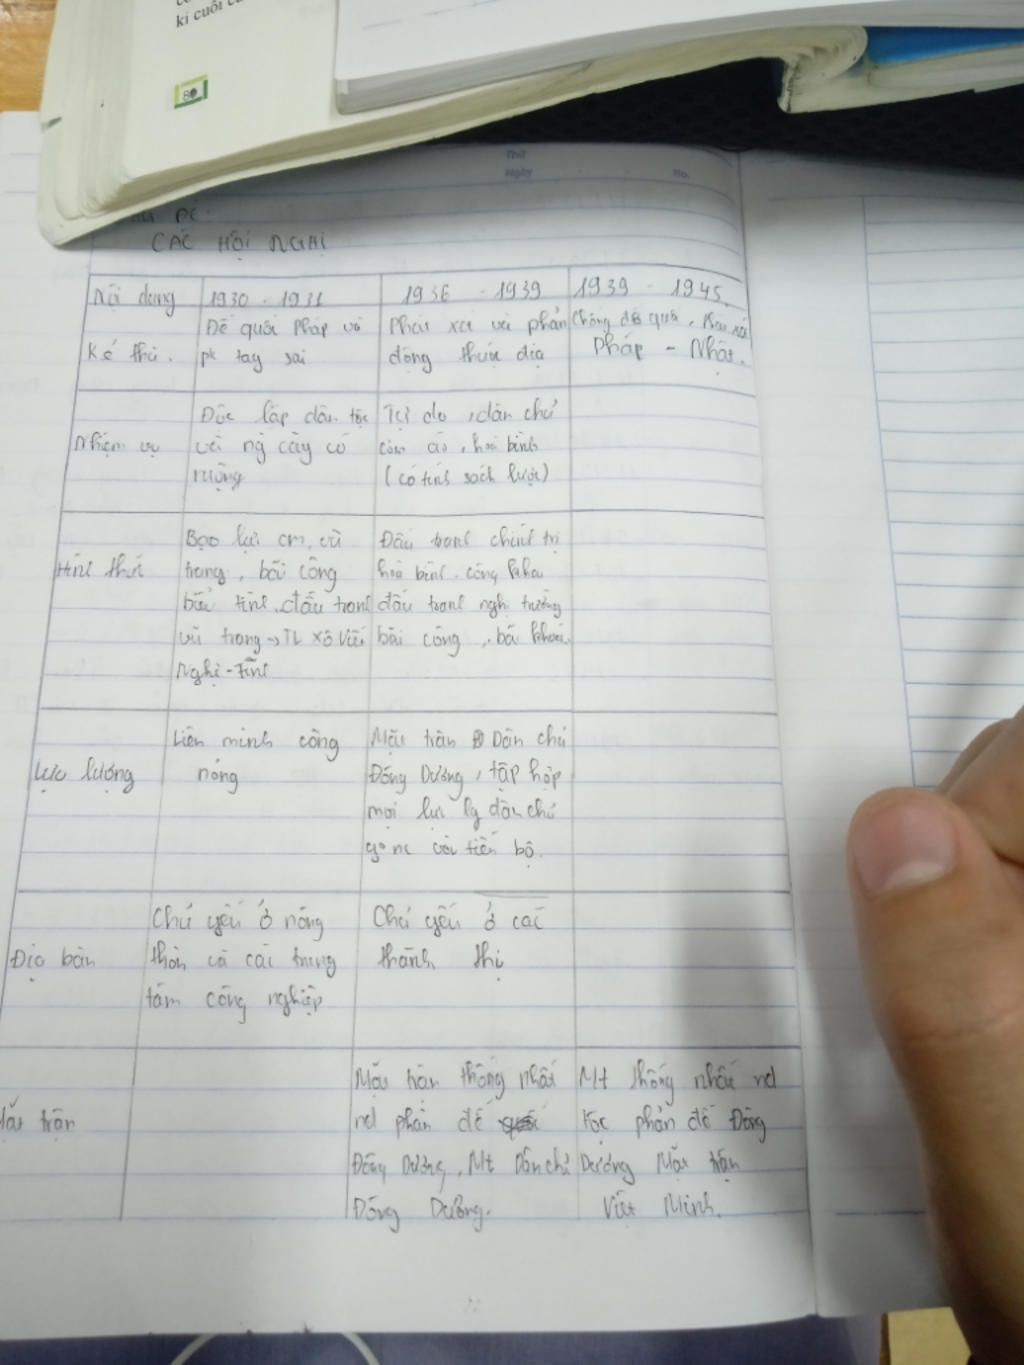 kỉ cuối c
80
Thứ
Ngày
No.
CÁC HỘI NGHỊ
Nội dung 1930 - 1931 1936 - 1939 1939 - 1945
Kẻ thù. Đế quốc Pháp và Phát xít và phản Chống đế quốc,
pk tay sai động thuộc địa Pháp - Nhật.
Nhiệm vụ Độc lập dân tộc Tự do, dân chủ
và ng cày có cơm áo, hoà bình
ruộng (có tính sách lược)
Hình thức Bạo lực cm, vũ Đấu tranh chính trị
trang, bãi công hoà bình, công khai
biểu tình, đấu tranh đấu tranh nghị trường
vũ trang → TL Xô Viết bãi công, bãi khoá.
Nghệ - Tĩnh
Lực lượng Liên minh công Mặt trận Dân chủ
nông Đông Dương, tập hợp
mọi lực lg dân chủ
và tiến bộ.
Địa bàn Chủ yếu ở nông Chủ yếu ở các
thôn và các trung thành thị
tâm công nghiệp
Mặt trận thống nhất Mt thống nhất nd
trận nd phản đế tộc phản đế Đông
Đông Dương, Mt Dân chủ Dương Mặt trận
Đông Dương. Việt Minh.